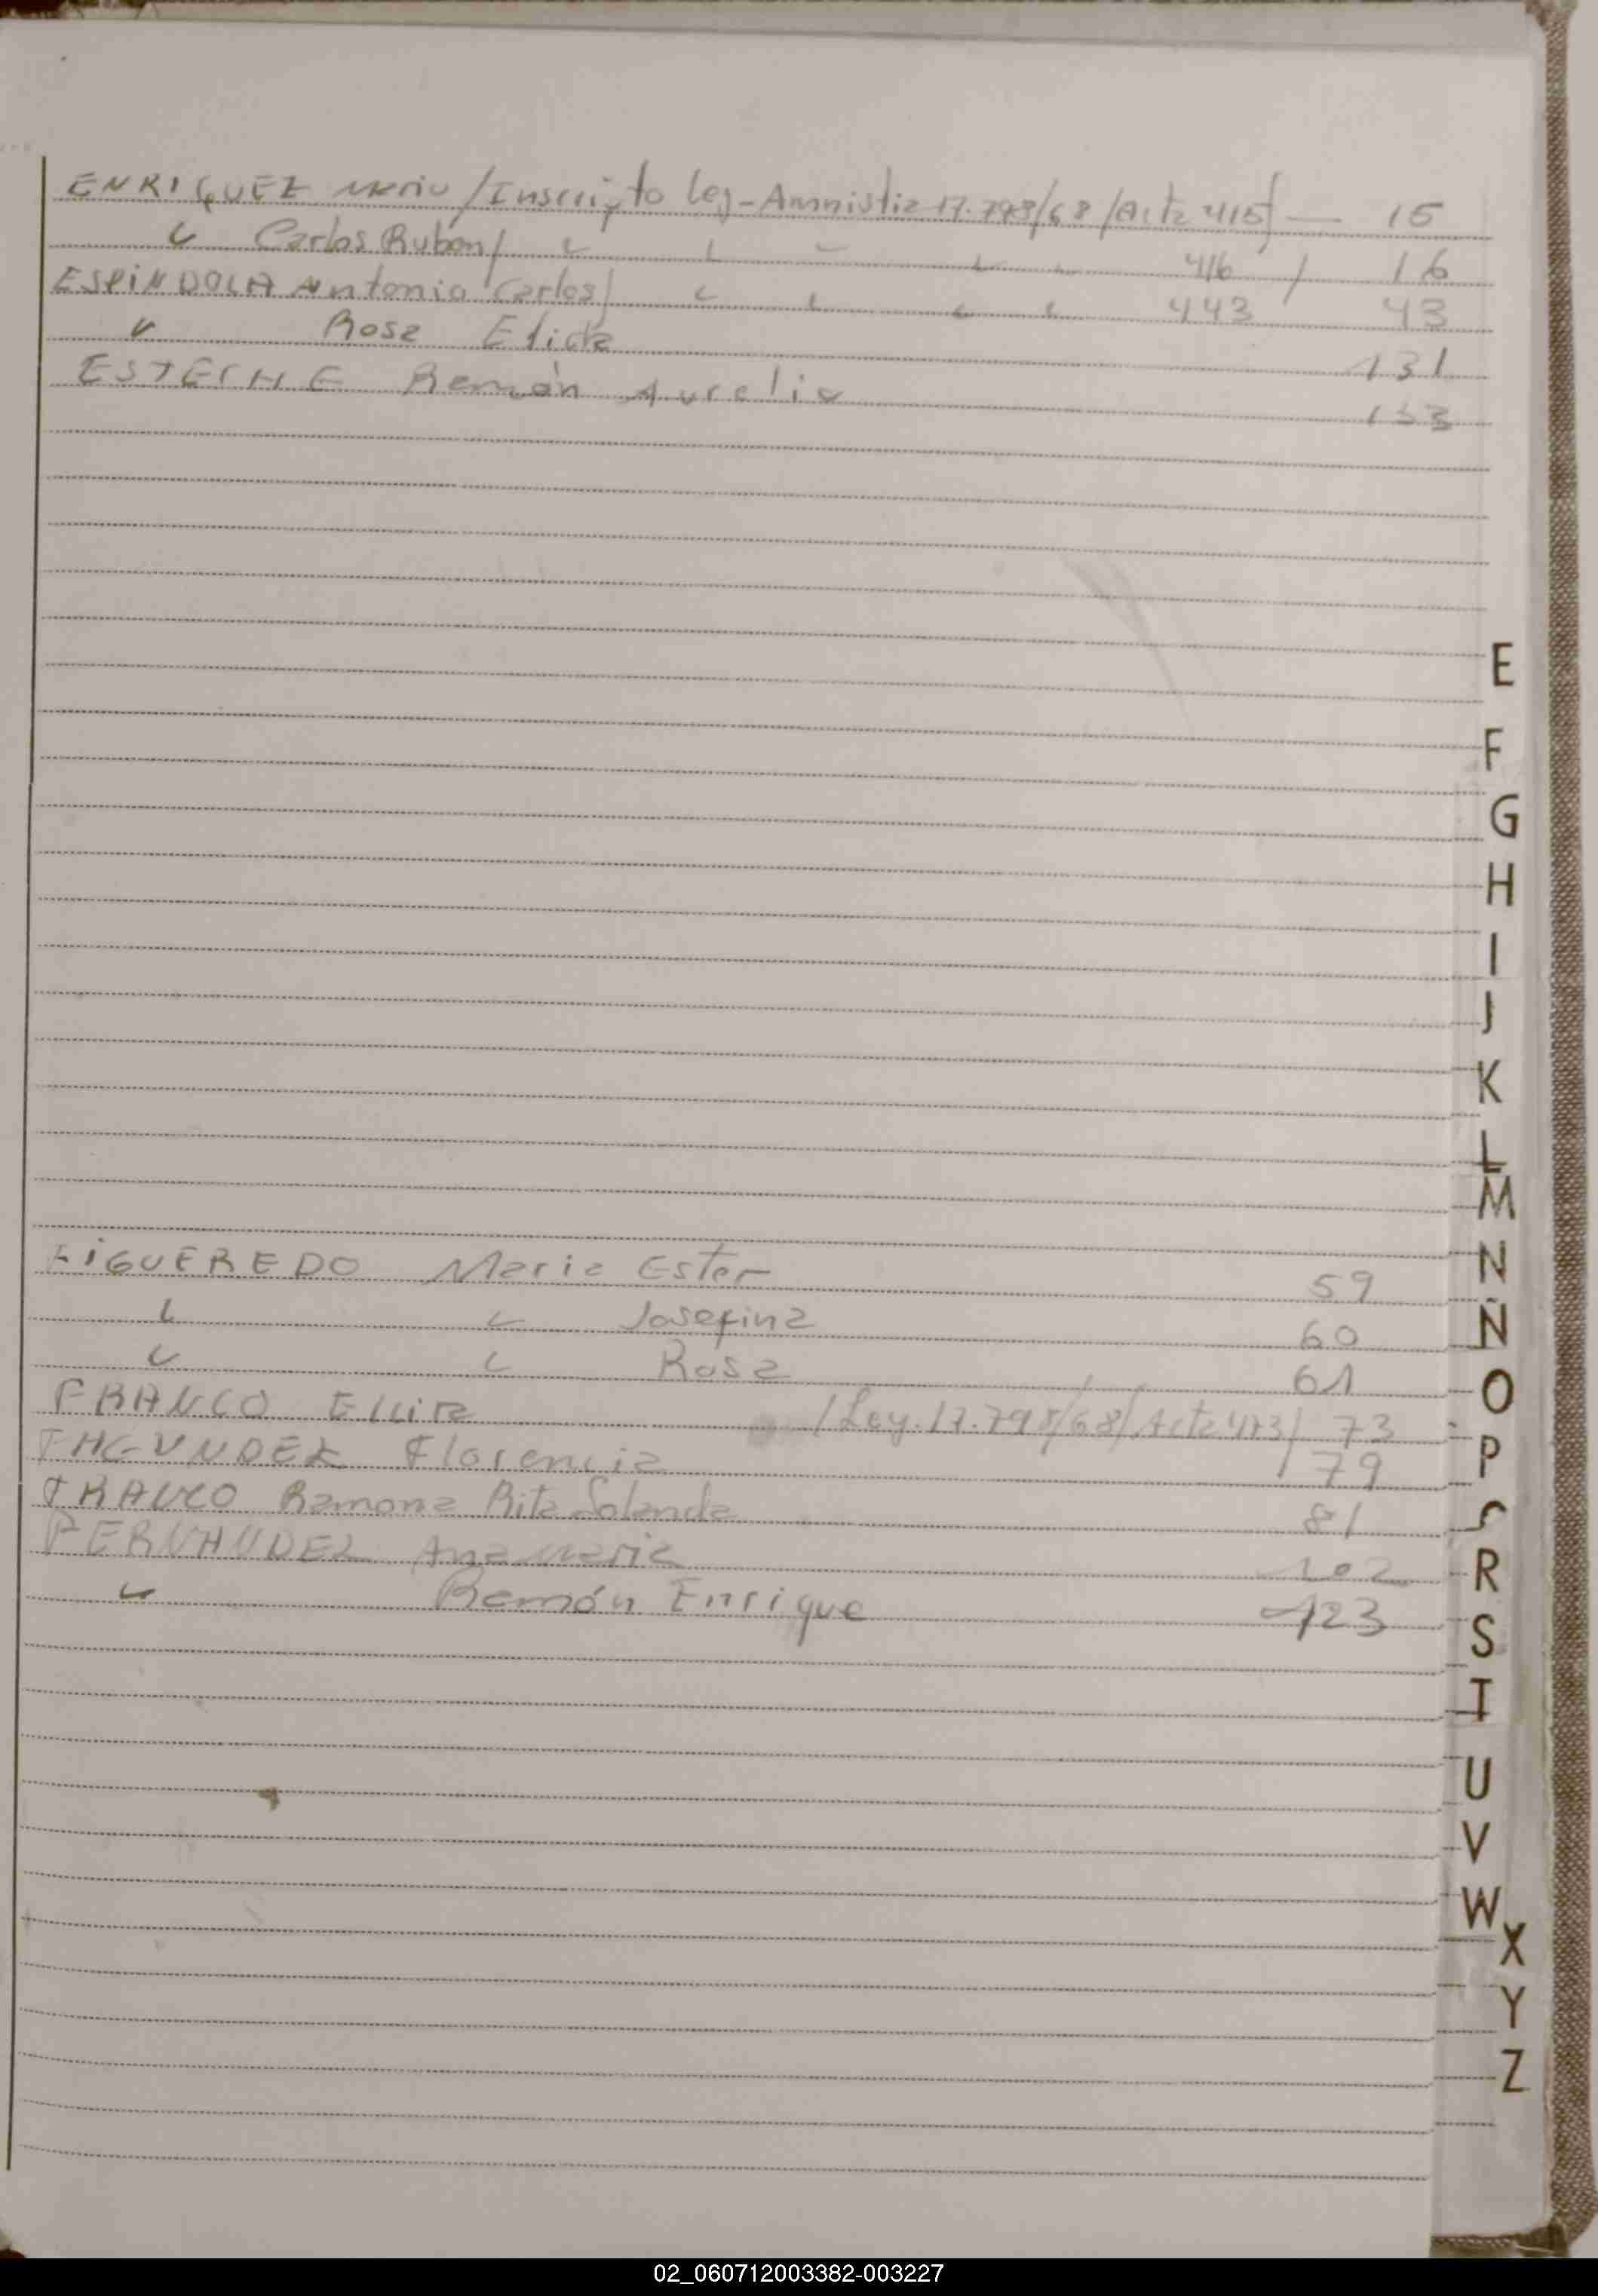 ENRIQUEZ Mario / Inscripto Ley - Amnistia 17.798/68 / Acta 415 / — 15
" Carlos Ruben / " " " " " 416 / 16
ESPINDOLA Antonio Carlos / " " " " 443 43
" Rosa Elida 131
ESTECHE Ramón Aurelio 133
E
F
G
H
I
J
K
L
M
FIGUEREDO Maria Ester 59
N
" " Josefina 60
Ñ
" " Rosa 61
O
FRANCO / Ley. 17.798/68 / Acta 473 / 73
Florencia 79
P
FRANCO Ramona Rita 81
FERNANDEZ Ana Maria 102
R
" Ramón Enrique 123
S
T
U
V
W
X
Y
Z
02_060712003382-003227